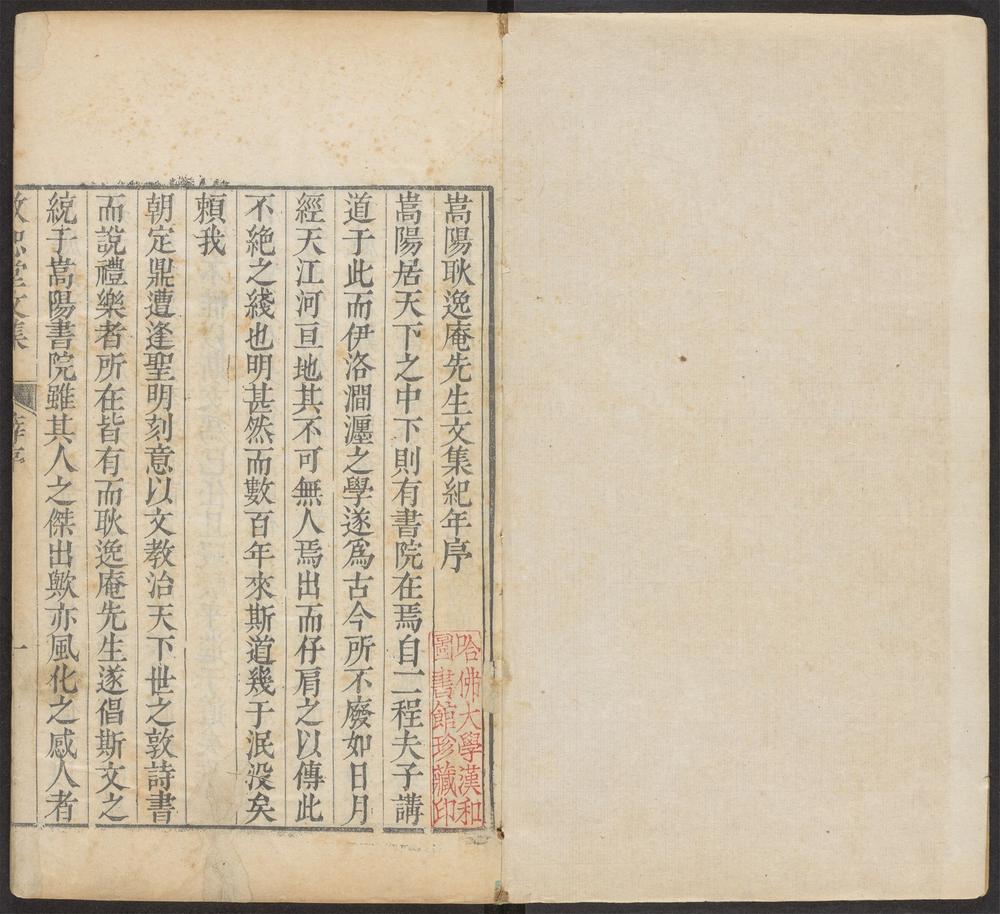 嵩陽耿逸庵先生文集紀年序
嵩陽居天下之中下則有書院在焉自二程夫子講
道于此而伊洛澗瀍之學遂爲古今所不廢如日月
經天江河亘地其不可無人焉出而仔肩之以傳此
不絶之綫也明甚然而數百年來斯道幾于泯没矣
頼我
朝定鼎遭逢聖明刻意以文教治天下世之敦詩書
而說禮樂者所在皆有而耿逸庵先生遂倡斯文之
統于嵩陽書院雖其人之傑出歟亦風化之感人者
敬恕堂文集
一
哈佛大學漢和
圖書館珍藏印